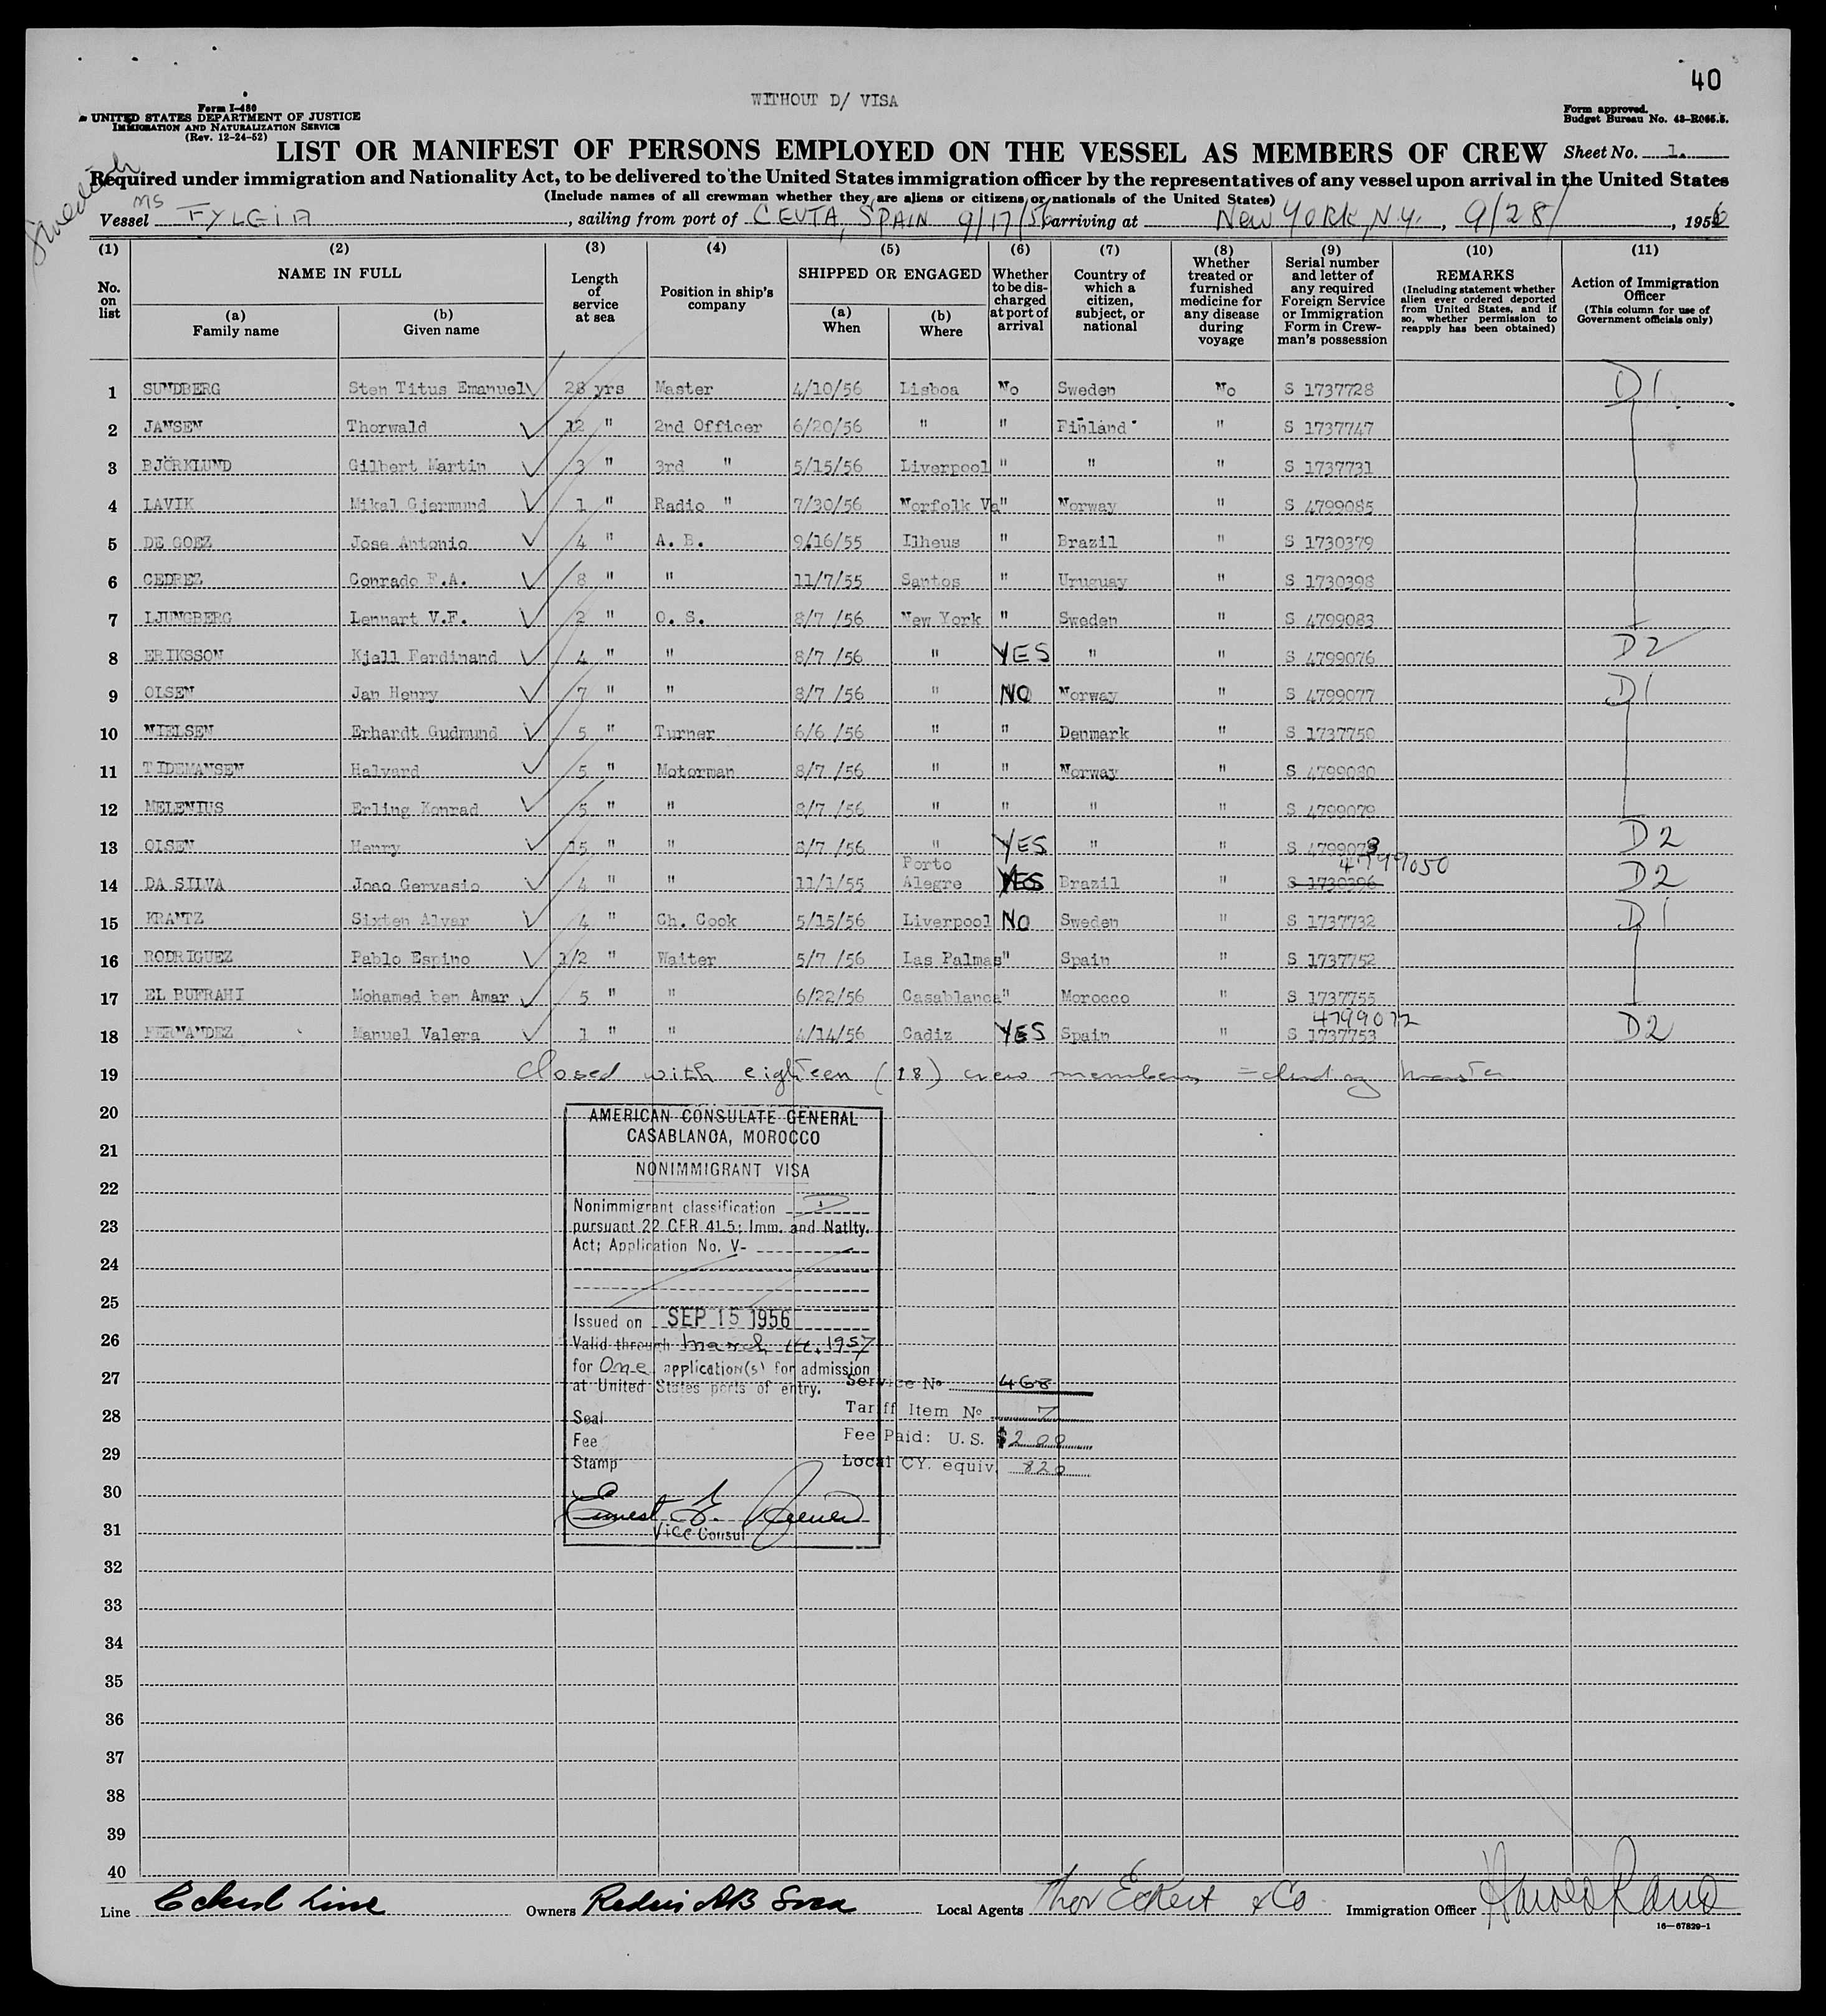 40
WITHOUT D/ VISA
Form I-480
UNITED STATES DEPARTMENT OF JUSTICE
IMMIGRATION AND NATURALIZATION SERVICE
(Rev. 12-24-52)
Form approved.
Budget Bureau No. 43-R065.5.
LIST OR MANIFEST OF PERSONS EMPLOYED ON THE VESSEL AS MEMBERS OF CREW Sheet No. 1.
Required under immigration and Nationality Act, to be delivered to the United States immigration officer by the representatives of any vessel upon arrival in the United States
(Include names of all crewman whether they are aliens or citizens or nationals of the United States)
Swedish
Vessel MS FYLGIA, sailing from port of CEUTA, SPAIN 9/17/56 arriving at New York, N.Y., 9/28/, 1956
(1) (2) (3) (4) (5) (6) (7) (8) (9) (10) (11)
No. on list
NAME IN FULL
(a) Family name
(b) Given name
Length of service at sea
Position in ship's company
SHIPPED OR ENGAGED
(a) When
(b) Where
Whether to be discharged at port of arrival
Country of which a citizen, subject, or national
Whether treated or furnished medicine for any disease during voyage
Serial number and letter of any required Foreign Service or Immigration Form in Crewman's possession
REMARKS
(Including statement whether alien ever ordered deported from United States, and if so, whether permission to reapply has been obtained)
Action of Immigration Officer
(This column for use of Government officials only)
1 SUNDBERG Sten Titus Emanuel 28 yrs Master 4/10/56 Lisboa No Sweden No S 1737728 D1
2 JANSEN Thorwald 12 " 2nd Officer 6/20/56 " " Finland " S 1737747
3 BJÖRKLUND Gilbert Martin 3 " 3rd " 5/15/56 Liverpool " " " S 1737731
4 LAVIK Mikal Gjermund 1 " Radio " 7/30/56 Norfolk Va " Norway " S 4799085
5 DE GOEZ Jose Antonio 4 " A. B. 9.16/55 Ilheus " Brazil " S 1730379
6 CEDREZ Conrado F.A. 8 " " 11/7/55 Santos " Uruguay " S 1730398
7 LJUNGBERG Lennart V.F. 2 " O. S. 8/7 /56 New York " Sweden " S 4799083
8 ERIKSSON Kjell Ferdinand 4 " " 8/7 /56 " YES " " S 4799076 D2
9 OLSEN Jan Henry 7 " " 8/7 /56 " NO Norway " S 4799077 D1
10 NIELSEN Erhardt Gudmund 5 " Turner 6/6 /56 " " Denmark " S 1737750
11 TIDEMANSEN Halvard 5 " Motorman 8/7 /56 " " Norway " S 4799080
12 MELENIUS Erling Konrad 5 " " 8/7 /56 " " " " S 4799079
13 OLSEN Henry 15 " " 8/7 /56 " YES " " S 4799073 D2
14 DA SILVA Joao Gervasio 4 " " 11/1/55 Porto Alegre YES Brazil " S 1730396 4799050 D2
15 KRANTZ Sixten Alvar 4 " Ch. Cook 5/15/56 Liverpool NO Sweden " S 1737732 D1
16 RODRIGUEZ Pablo Espino 1/2 " Waiter 5/7 /56 Las Palmas " Spain " S 1737752
17 EL BUFRAHI Mohamed ben Amar 5 " " 6/22/56 Casablanca " Morocco " S 1737755
18 HERNANDEZ Manuel Valera 1 " " 4/14/56 Cadiz YES Spain " 4799072 S 1737753 D2
19 Closed with eighteen (18) crew members including master
20
AMERICAN CONSULATE GENERAL
21
CASABLANCA, MOROCCO
22
NONIMMIGRANT VISA
23
Nonimmigrant classification D
pursuant 22 CFR 41.5; Imm. and Natlty.
Act; Application No. V-
24
25
Issued on SEP 15 1956
26
Valid through March 14, 1957
for One application(s) for admission
27
at United States ports of entry.
Service No 468
28
Seal
Tariff Item No 7
Fee
Fee Paid: U.S. $2.00
29
Stamp
Local CY. equiv. 820
30
31
Vice Consul
32
33
34
35
36
37
38
39
40
Line Eckert Line Owners Rederi AB Svea Local Agents Thor Eckert & Co Immigration Officer
16—67829-1